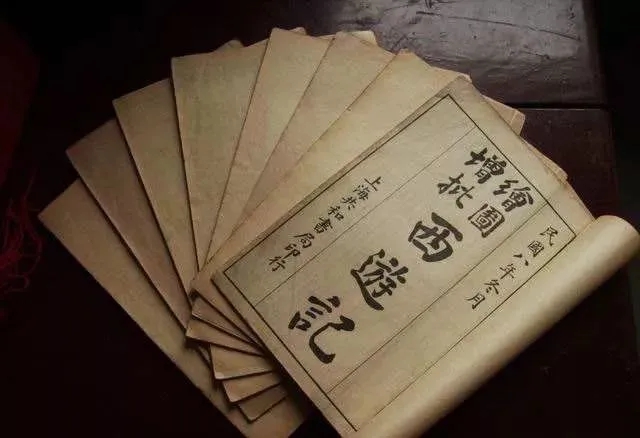 民國八年冬月
繪圖
增批
西遊記
上海共和書局印行